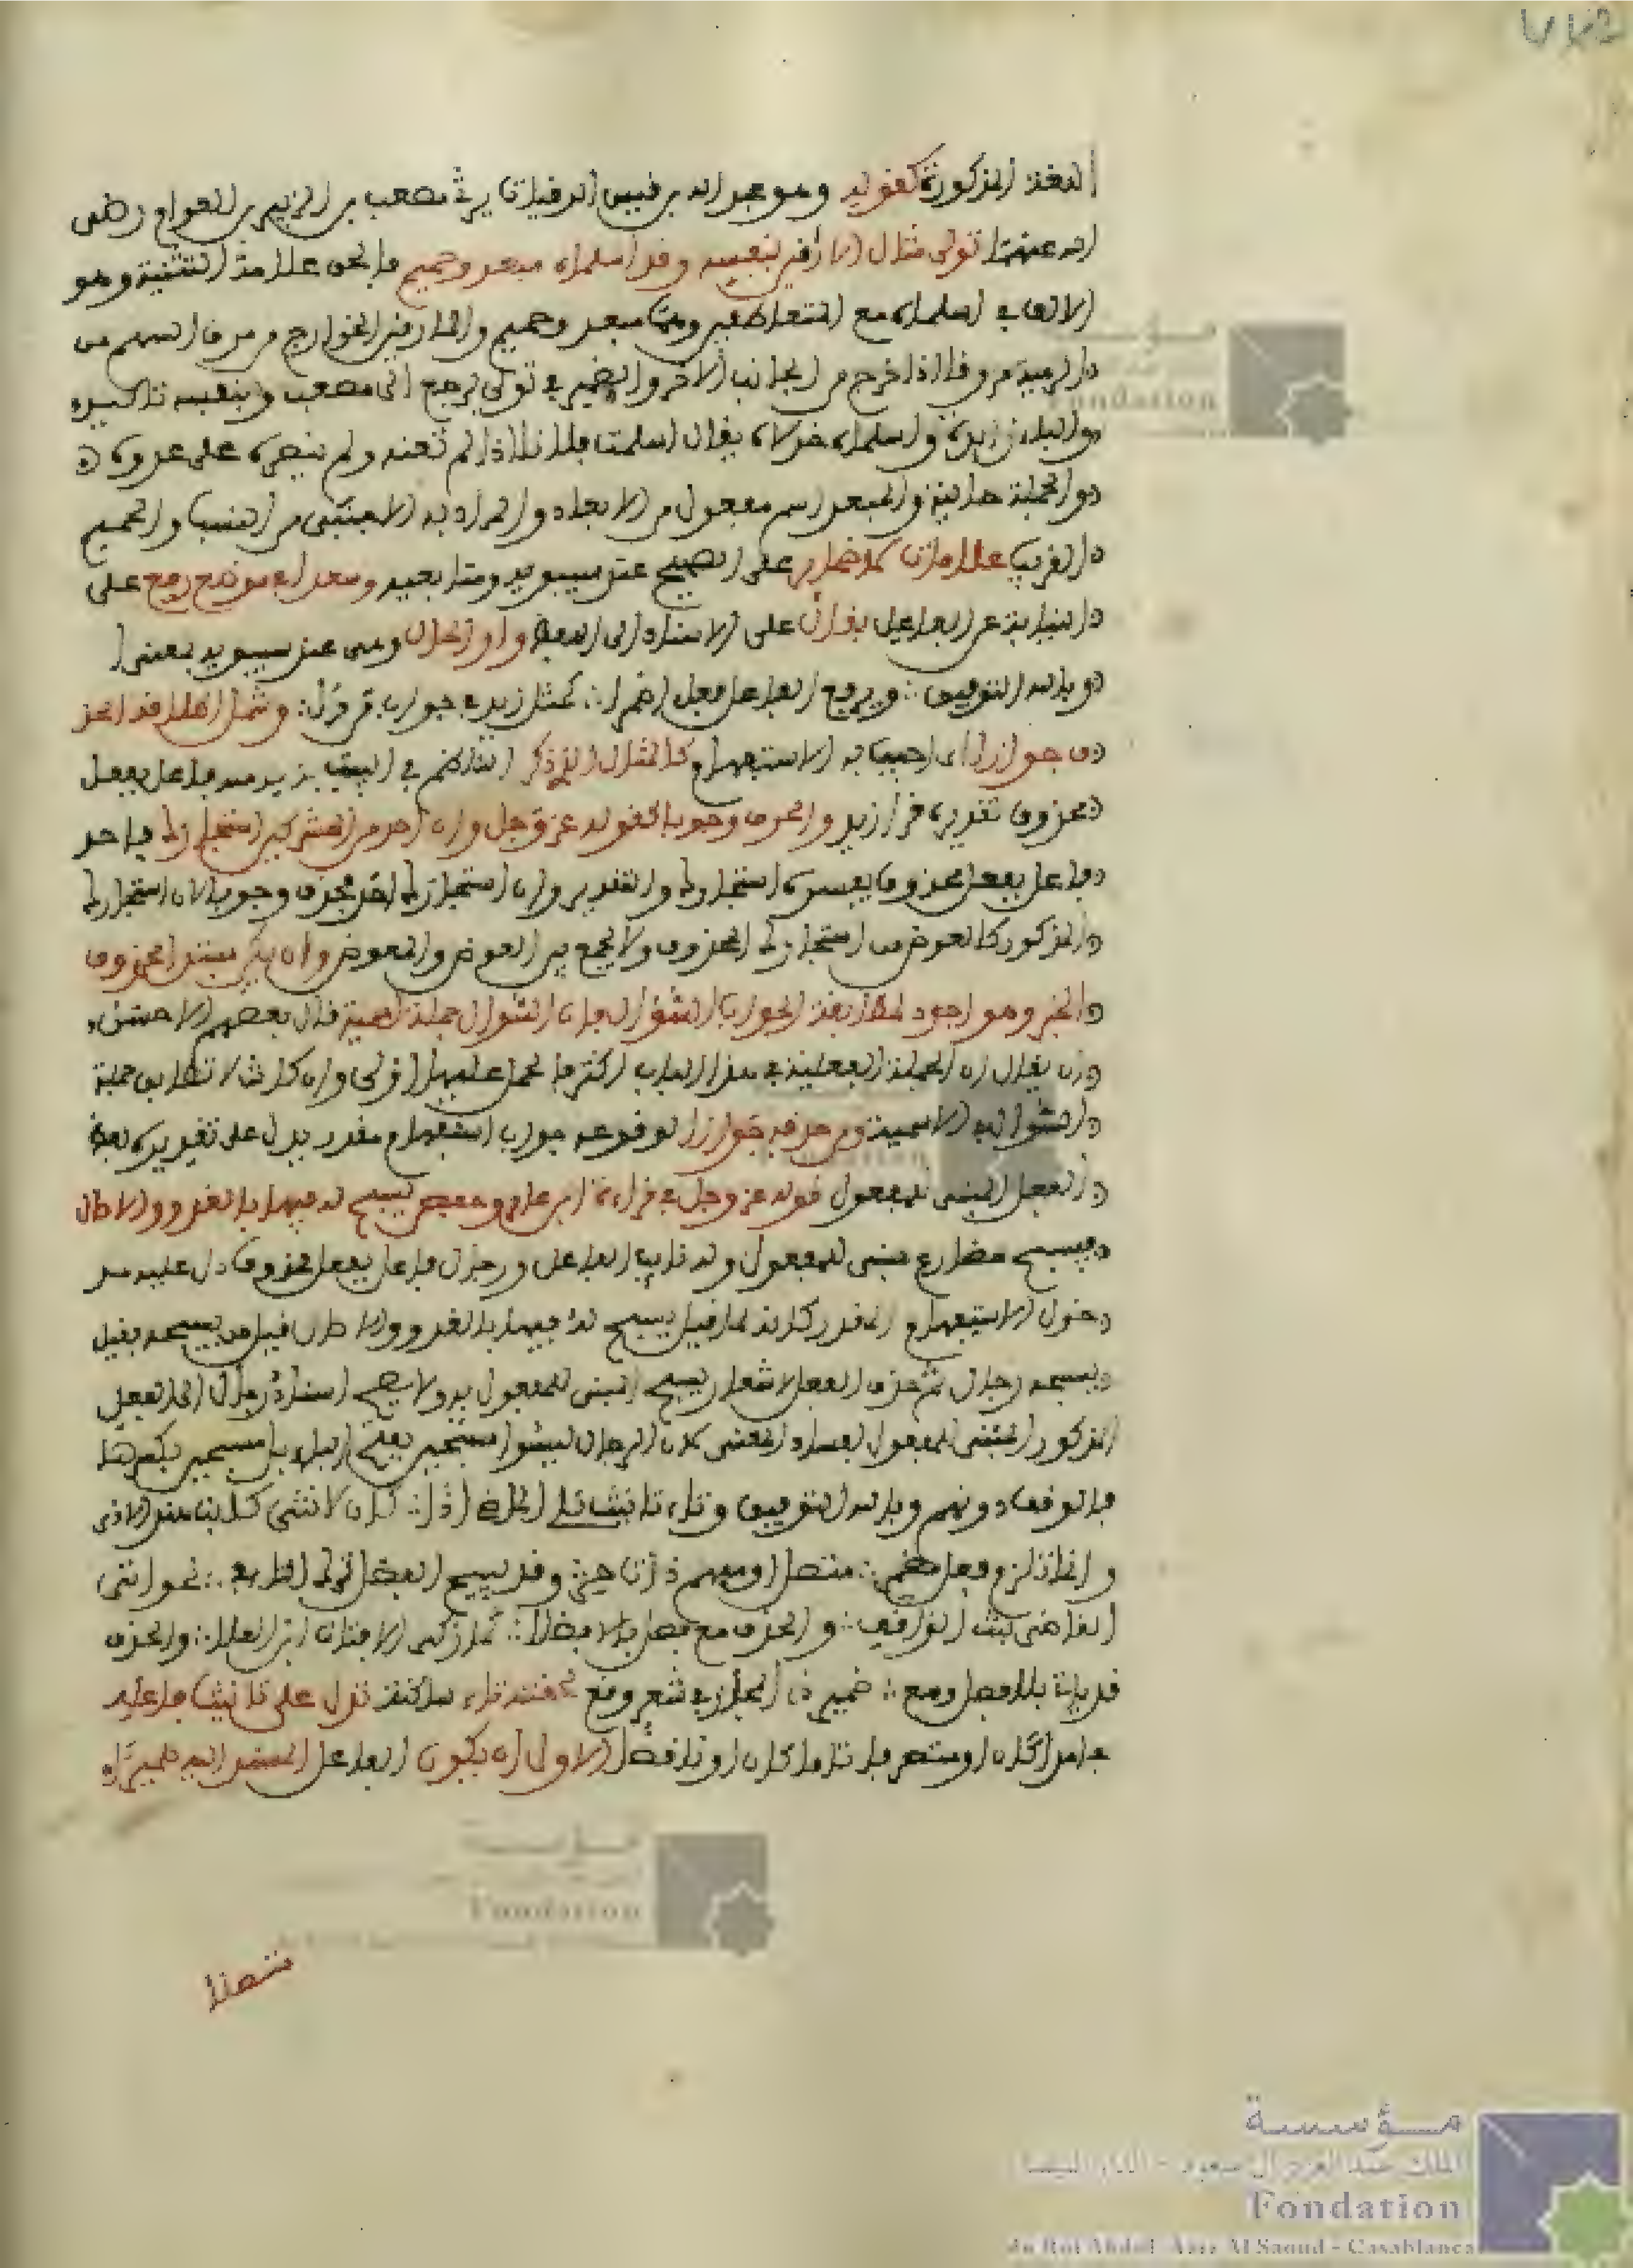 اللغة المذكورة كقوله وهو عبد الله بن قيس الرقيات يرثي مصعب بن الزبير بن العوام رضي
الله عنهما تولى قتال المارقين بنفسه وقد أسلماه مبعد وحميم فألحق علامة التثنية وهو
الألف في أسلماه مع المتعاطفين وهما مبعد وحميم والمارقين الخوارج من مرق السهم من
الرمية مروقا إذا خرج من الجانب الآخر والضمير في تولى يرجع إلى مصعب وبنفسه تأكيده
والباء زايدة وأسلماه خذلاه يقال أسلمت فلانا إذا لم تعنه ولم تنصره على عدوه
والجملة حالية والمبعد اسم مفعول من الإبعاد والمراد به الأجنبي من النسب والحميم
القريب علامات كمضمار على الصحيح عند سيبويه ومتابعيه ومعرابه موضع رفع على
النيابة عن الفاعل بقال على الإسناد إلى اللفظ واو الحال وهي عند سيبويه بمعنى إذ
وبالله التوفيق ويرفع الفاعل فعل أضمرا كمثل زيد في جواب من قرأ وشمل إطلاقه الحذ
ف جوازا أي أجيب به الاستفهام كالمثال الذي ذكر
محذوف تقديره قرأ زيد والحذف وجوبا كقوله عز وجل وإن أحد من المشركين استجارك فأحد
فاعل بفعل محذوف يفسره استجارك والتقدير وإن استجارك أحد فحذف وجوبا لأن استجارك
المذكور كالعوض من استجارك المحذوف ولا يجمع بين العوض والمعوض وإن يكن مبتدا محذوف
الخبر وهو أجود لمطابقة الجواب السؤال فإن السؤال جملة اسمية قال بعضهم الأحسن
أن يقال إن الجملة الفعلية في هذا الباب أكثر فالحمل عليها أولى وإن كانت لا تطابق جملة
السؤال الاسمية ومن حذفه جوازا لوقوعه جواب استفهام مقدر يدل على تقديره لفظ
الفعل المبني للمفعول قوله عز وجل في قراءة ابن عامر وبعض يسبح له فيها بالغدو والآصال
فيسبح مضارع مبني للمفعول وله نايب الفاعل ورجال فاعل بفعل محذوف دل عليه مد
خول الاستفهام المقدر كأنه لما قيل يسبح له فيها بالغدو والآصال قيل من يسبحه فقيل
يسبحه رجال ثم حذف الفعل لإشعار يسبح المبني للمفعول به ولا يصح إسناد رجال إلى الفعل
المذكور المبني للمفعول لفساد المعنى لأن الرجال ليسوا مسبحين بفتح الباء بل مسبحين بكسرها
فالوقف دونهم وبالله التوفيق وتاء تأنيث تلي الماضي إذا كان لأنثى كأبت هند الأذى
وإنما تلزم فعل مضمر متصل أو مفهم ذات حر وقد يبيح الفصل ترك التاء في نحو أتى
القاضي بنت الواقف والحذف مع فصل بإلا فضلا كما زكى إلا فتاة ابن العلا والحذف
قد يأتي بلا فصل ومع ضمير ذي المجاز في شعر وقع تاء ساكنة تدل على تأنيث فاعله
جامدا كان أو متصرفا تاما كان أو ناقصا الأولى أن يكون الفاعل المسند إليه ضميرا
متصلا
مؤسسة
الملك عبد العزيز آل سعود - الدار البيضاء
Fondation
du Roi Abdul Aziz Al Saoud - Casablanca